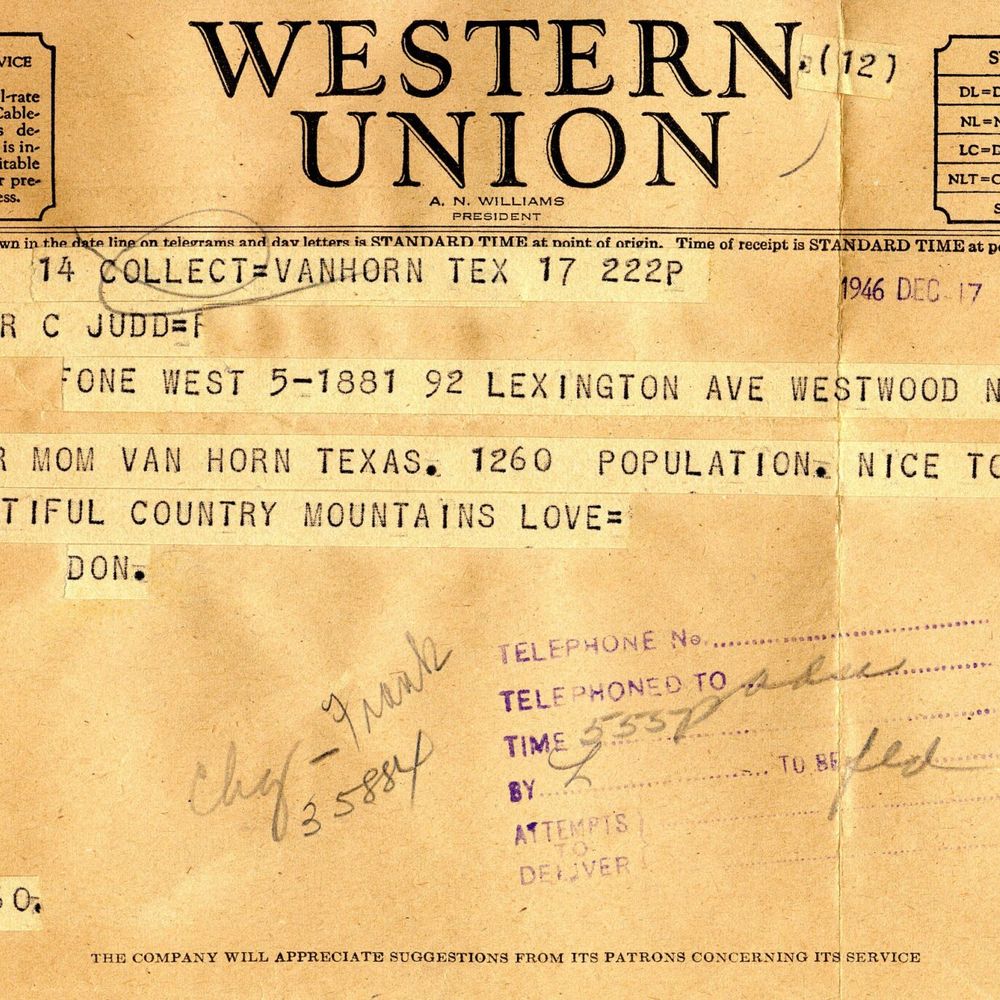 WESTERN
(12)
UNION
A. N. WILLIAMS
PRESIDENT
VICE
l-rate
Cable-
s de-
is in-
itable
r pre-
ess.
S
DL=D
NL=N
LC=D
NLT=C
S
wn in the date line on telegrams and day letters is STANDARD TIME at point of origin. Time of receipt is STANDARD TIME at po
14 COLLECT=VANHORN TEX 17 222P
1946 DEC 17
R C JUDD=
FONE WEST 5-1881 92 LEXINGTON AVE WESTWOOD N
R MOM VAN HORN TEXAS. 1260 POPULATION. NICE TO
TIFUL COUNTRY MOUNTAINS LOVE=
DON.
Chg - Frank
35884
TELEPHONE No.
TELEPHONED TO
TIME 555P
BY L TO BE
ATTEMPTS
TO
DELIVER
O.
THE COMPANY WILL APPRECIATE SUGGESTIONS FROM ITS PATRONS CONCERNING ITS SERVICE